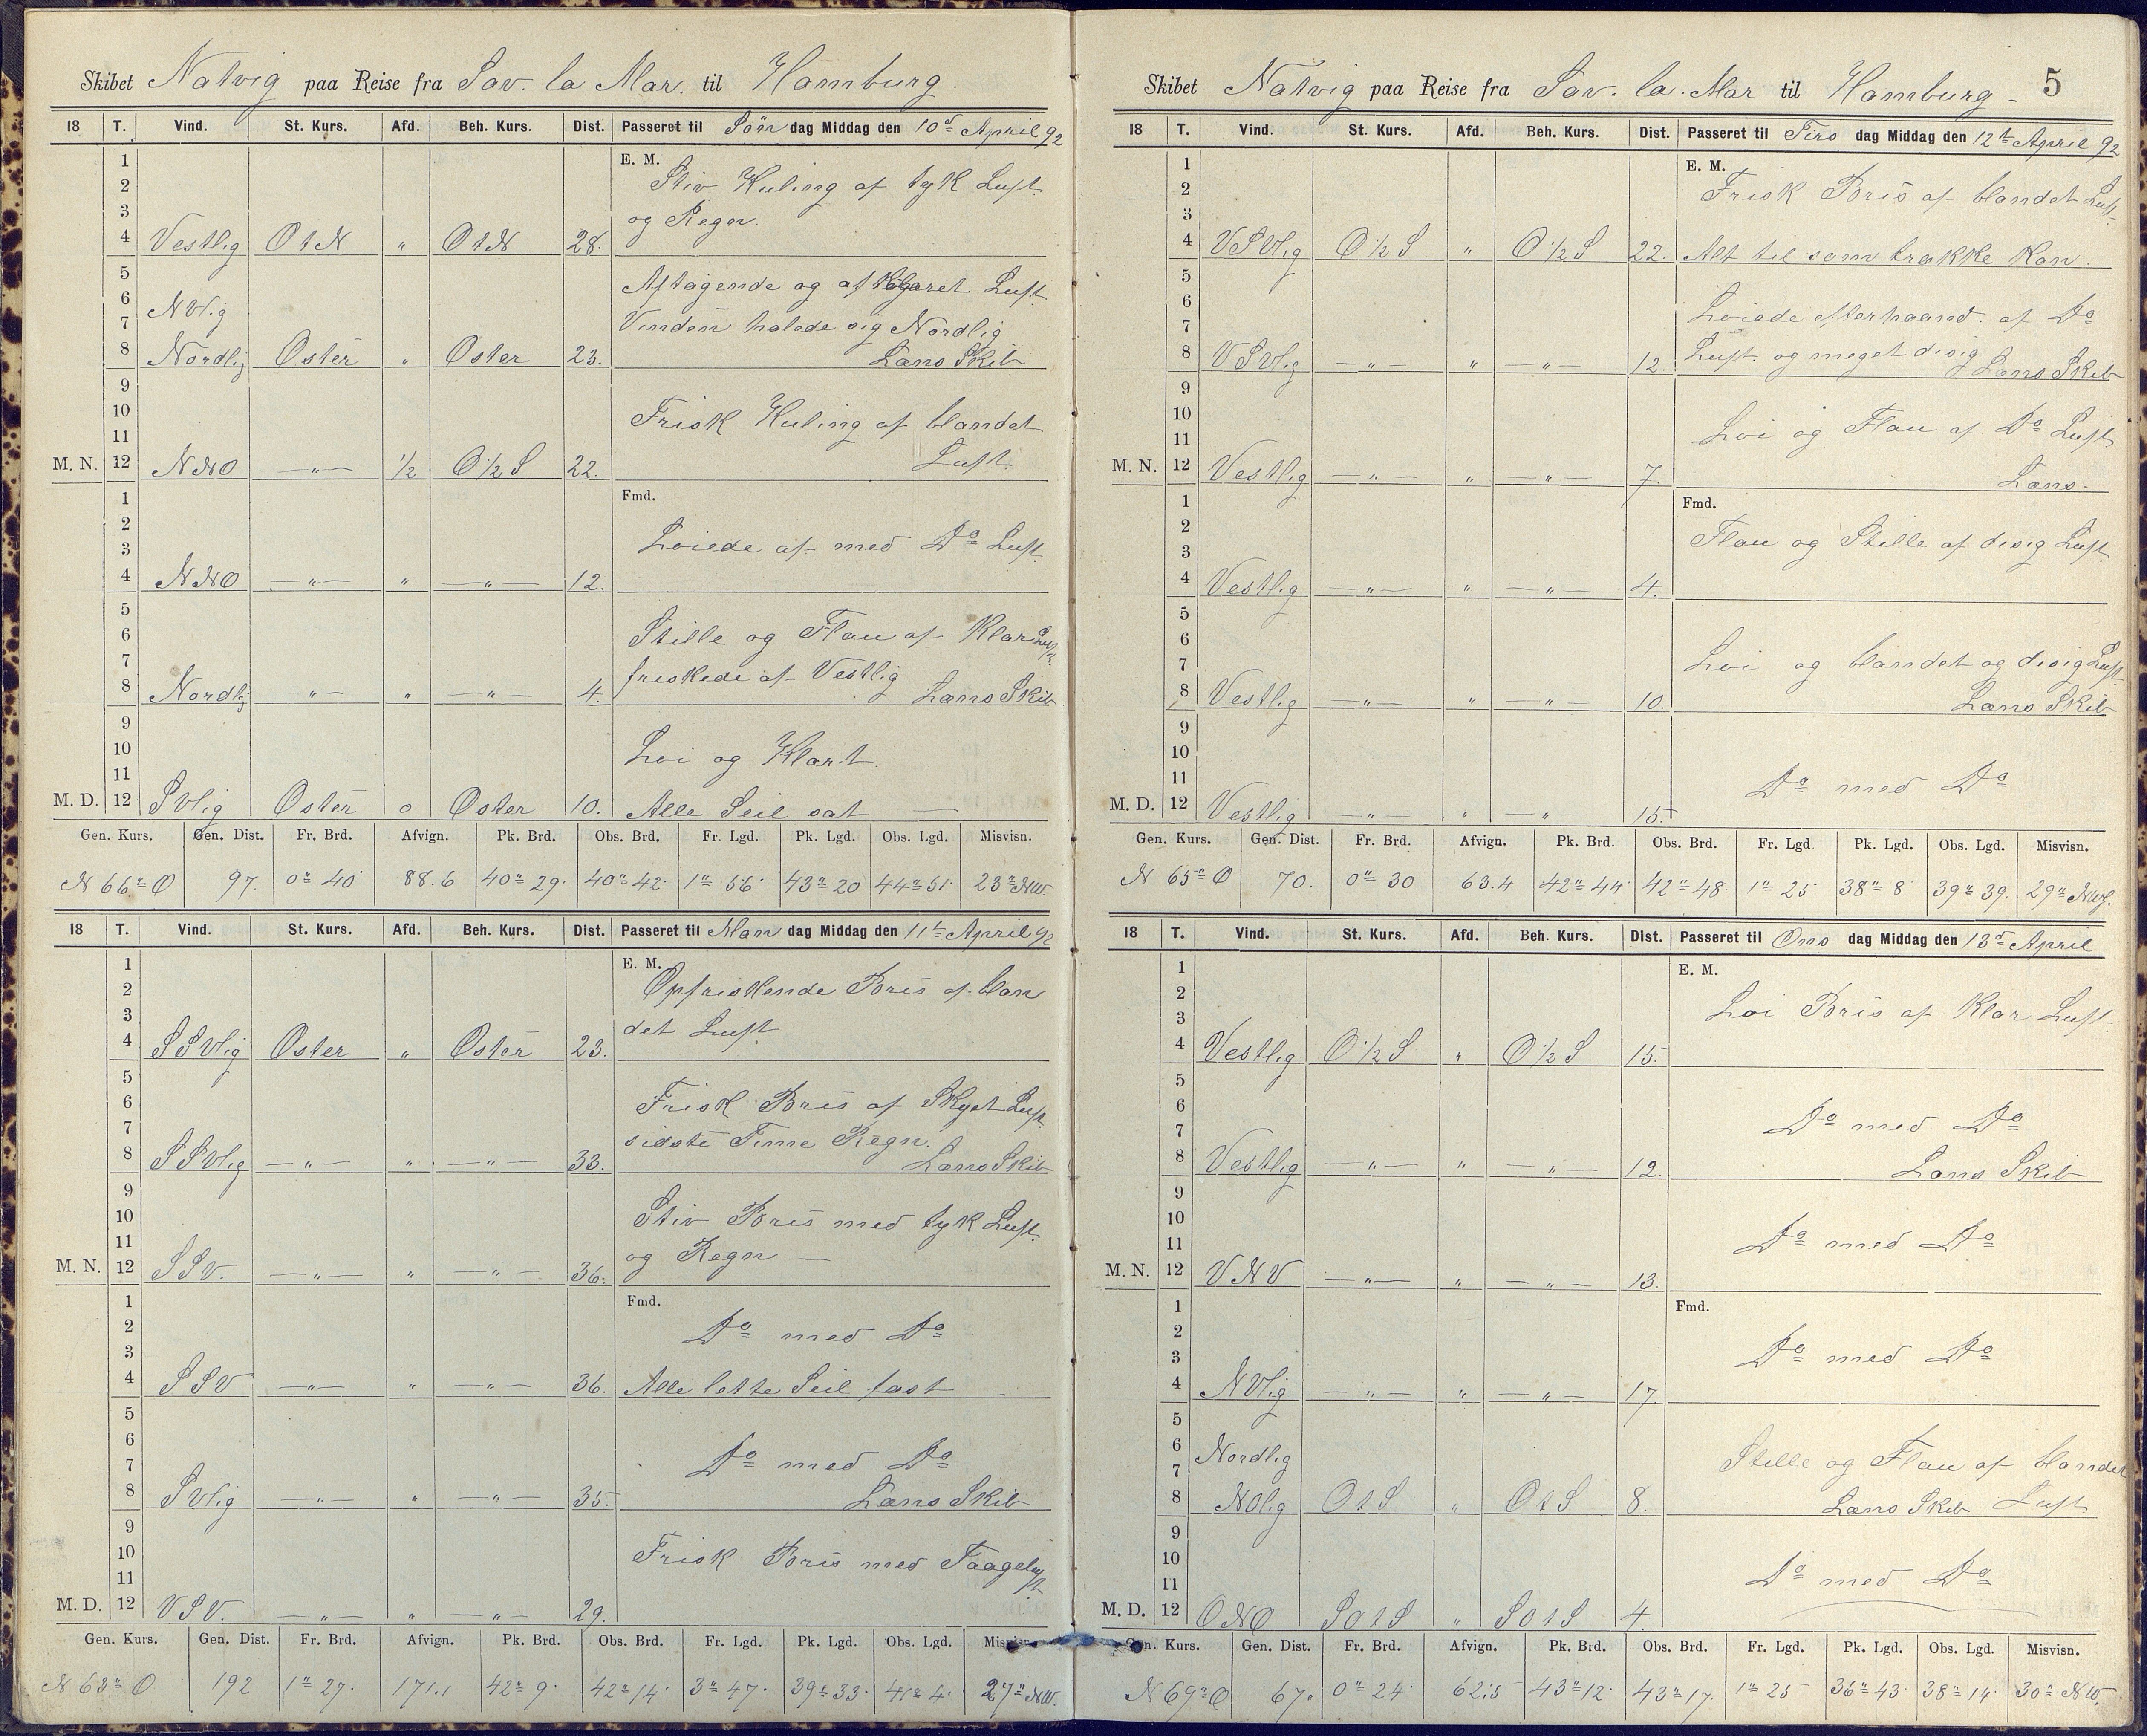 Skibet Natvig paa Reise fra Sav. la Mar. til Hamburg.
18 T. Vind. St. Kurs. Afd. Beh. Kurs. Dist. Passeret til Søn dag Middag den 10d April 92
1 E. M.
2 Stiv Kuling af tyk Luft
3 og Regn.
4 Vestlig O t N " O t N 28.
5 Aftagende og af Luft
6 NVlig
7 Vinden halede sig Nordlig
8 Nordlig Oster " Oster 23. Læns Skib
9
10 Frisk Kuling af blandet
11
M. N. 12 NNO —"— 1/2 O 1/2 S 22. Luft
1 Fmd.
2 Løiede af med Do Luft
3
4 NNO —"— " —"— 12.
5
6 Stille og Flau af Klar Luft
7 friskede af Vestlig
8 Nordlig —"— " —"— 4. Læns Skib
9
10 Løi og Klart.
11
M. D. 12 SVlig Oster o Oster 10. Alle Seil sat —
Gen. Kurs. Gen. Dist. Fr. Brd. Afvign. Pk. Brd. Obs. Brd. Fr. Lgd. Pk. Lgd. Obs. Lgd. Misvisn.
N 66° O 97. 0° 40' 88.6 40° 29' 40° 42' 1° 56' 43° 20 44° 51' 23° NW.
18 T. Vind. St. Kurs. Afd. Beh. Kurs. Dist. Passeret til Man dag Middag den 11t April 92
1 E. M.
2 Opfriskende Bris af blan
3 det Luft
4 SSVlig Oster " Oster 23.
5
6 Frisk Bris af Skyet Luft
7 sidste Time Regn.
8 SSVlig —"— " —"— 33. Læns Skib
9
10 Stiv Bris med tyk Luft
11 og Regn —
M. N. 12 SSV. —"— " —"— 36.
1 Fmd.
2 Do med Do
3
4 SSV —"— " —"— 36. Alle lette Seil fast
5
6
7 Do med Do
8 SVlig —"— " —"— 35. Læns Skib
9
10 Frisk Bris med Taageluft
11
M. D. 12 VSV. —"— " —"— 29.
Gen. Kurs. Gen. Dist. Fr. Brd. Afvign. Pk. Brd. Obs. Brd. Fr. Lgd. Pk. Lgd. Obs. Lgd. Misvisn.
N 63° O 192 1° 27' 171.1 42° 9' 42° 14' 3° 47' 39° 33' 41° 4' 27° NW.
Skibet Natvig paa Reise fra Sav. la. Mar til Hamburg - 5
18 T. Vind. St. Kurs. Afd. Beh. Kurs. Dist. Passeret til Tirs dag Middag den 12t April 92
1 E. M.
2 Frisk Bris af blandet Luft
3
4 VSVlig O 1/2 S " O 1/2 S 22. Alt til som trække kan.
5
6 Løiede efterhaand. af Do
7
8 VSVlig —"— " —"— 12. Luft. og meget disig Læns Skib
9
10
11 Løi og Flau af Do Luft
M. N. 12 Vestlig —"— " —"— 7. Læns.
1 Fmd.
2 Flau og Stille af disig Luft
3
4 Vestlig —"— " —"— 4.
5
6
7 Løi og blandet og disig Luft
8 Vestlig —"— " —"— 10. Læns Skib
9
10
11 Do med Do
M. D. 12 Vestlig —"— " —"— 15.
Gen. Kurs. Gen. Dist. Fr. Brd. Afvign. Pk. Brd. Obs. Brd. Fr. Lgd Pk. Lgd. Obs. Lgd. Misvisn.
N 65° O 70. 0° 30 63.4 42° 44' 42° 48' 1° 25 38° 8' 39° 39' 29° NW.
18 T. Vind. St. Kurs. Afd. Beh. Kurs. Dist. Passeret til Ons dag Middag den 13d April
1 E. M.
2 Løi Bris af Klar Luft
3
4 Vestlig O 1/2 S " O 1/2 S 15.
5
6
7 Do med Do
8 Vestlig —"— " —"— 12. Læns Skib
9
10
11 Do med Do
M. N. 12 VNV —"— " —"— 13.
1 Fmd.
2
3 Do med Do
4 NVlig —"— " —"— 17.
5
6 Nordlig
7 Stille og Flau af blandet
8 NOlig O t S " O t S 8. Læns Skib Luft
9
10
11 Do med Do
M. D. 12 ONO SO t S " SO t S 4.
Gen. Kurs. Gen. Dist. Fr. Brd. Afvign. Pk. Brd. Obs. Brd. Fr. Lgd. Pk. Lgd. Obs. Lgd. Misvisn.
N 69° O 67. 0° 24' 62.5 43° 12' 43° 17' 1° 25 36° 43' 38° 14' 30° NW.